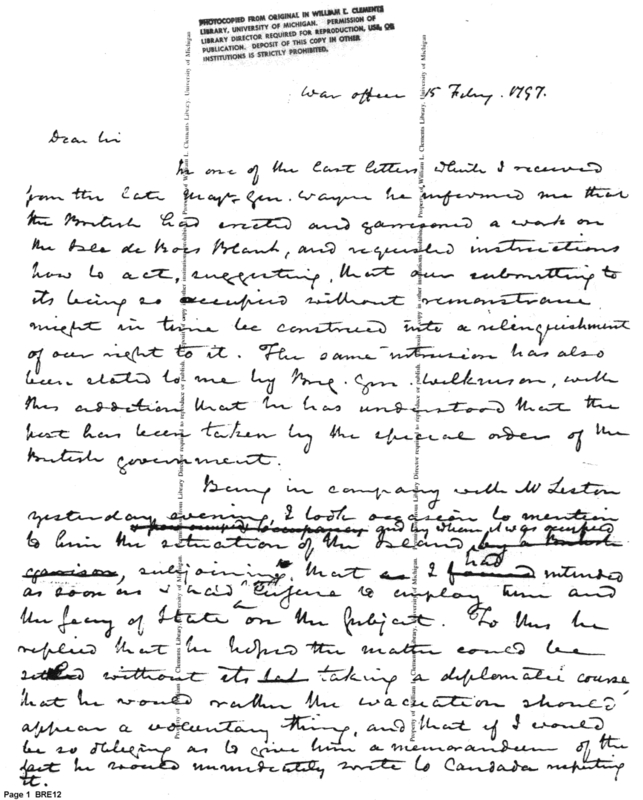 PHOTOCOPIED FROM ORIGINAL IN WILLIAM L. CLEMENTS
LIBRARY, UNIVERSITY OF MICHIGAN. PERMISSION OF
LIBRARY DIRECTOR REQUIRED FOR REPRODUCTION, USE, OR
PUBLICATION. DEPOSIT OF THIS COPY IN OTHER
INSTITUTIONS IS STRICTLY PROHIBITED.
War office 15 Feby. 1797.
Dear Sir
In one of the last letters which I received
from the late Majr. Gen. Wayne he informed me that
the British had erected and garrisoned a work on
the Isle de Bois Blank, and requested instructions
how to act, suggesting, that our submitting to
its being so occupied without remonstrance
might in time be construed into a relinquishment
of our right to it. The same intrusion has also
been stated to me by Brig. Gen. Wilkinson, with
this addition that he has understood that the
post has been taken by the special orders of the
British government.
Being in company with Mr Liston
yesterday evening, I took occasion to mention
and by whom it was occupied
to him the situation of the Island, by a British
garrison, subjoining, that as I had intended
as soon as I had to employ time and
the Secy of State on the subject. To this he
replied that he hoped the matter could be
settled without its taking a diplomatic course
that he would rather the evacuation should
appear a voluntary thing, and that if I would
be so obliging as to give him a memorandum of the
fact he would immediately write to Candada respecting
it.
Page 1 BRE12